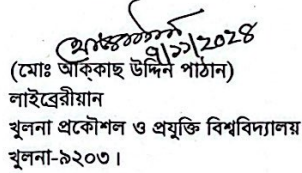 ৭/১১/২০২৪
(মোঃ আক্কাছ উদ্দিন পাঠান)
লাইব্রেরীয়ান
খুলনা প্রকৌশল ও প্রযুক্তি বিশ্ববিদ্যালয়
খুলনা-৯২০৩।